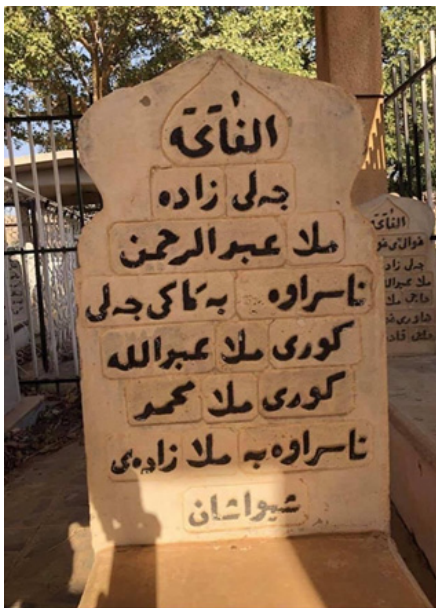 الفاتحة
جەلی زاده
ملا عبدالرحمن
ناسراوە بە کاکی جەلی
کوری ملا عبدالله
کوری ملا محمد
ناسراوە بە ملا زادەی
شیواشان
الفاتحة
جەلی زادە
ملا عبدالله